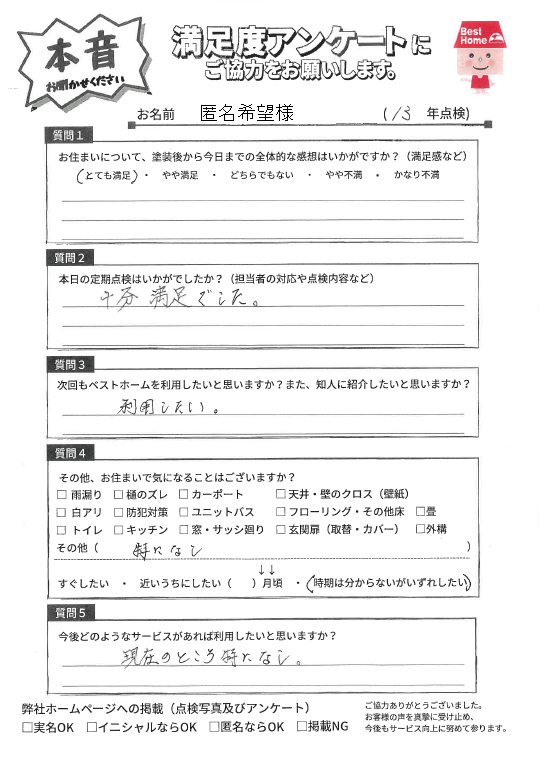 本音
お聞かせください
満足度アンケートに
ご協力をお願いします。
Best
Home
お名前 匿名希望様 (13 年点検)
質問1
お住まいについて、塗装後から今日までの全体的な感想はいかがですか？（満足感など）
(とても満足)・ やや満足 ・ どちらでもない ・ やや不満 ・ かなり不満
質問2
本日の定期点検はいかがでしたか？（担当者の対応や点検内容など）
十分 満足でした。
質問3
次回もベストホームを利用したいと思いますか？また、知人に紹介したいと思いますか？
利用したい。
質問4
その他、お住まいで気になることはございますか？
□ 雨漏り □ 樋のズレ □ カーポート □ 天井・壁のクロス（壁紙）
□ 白アリ □ 防犯対策 □ ユニットバス □ フローリング・その他床 □畳
□ トイレ □ キッチン □ 窓・サッシ廻り □ 玄関扉（取替・カバー） □外構
その他（ 特になし ）
↓↓
すぐしたい ・ 近いうちにしたい（ ）月頃 ・ (時期は分からないがいずれしたい)
質問5
今後どのようなサービスがあれば利用したいと思いますか？
現在のところ特になし。
弊社ホームページへの掲載（点検写真及びアンケート）
□実名OK □イニシャルならOK □匿名ならOK □掲載NG
ご協力ありがとうございました。
お客様の声を真摯に受け止め、
今後もサービス向上に努めて参ります。